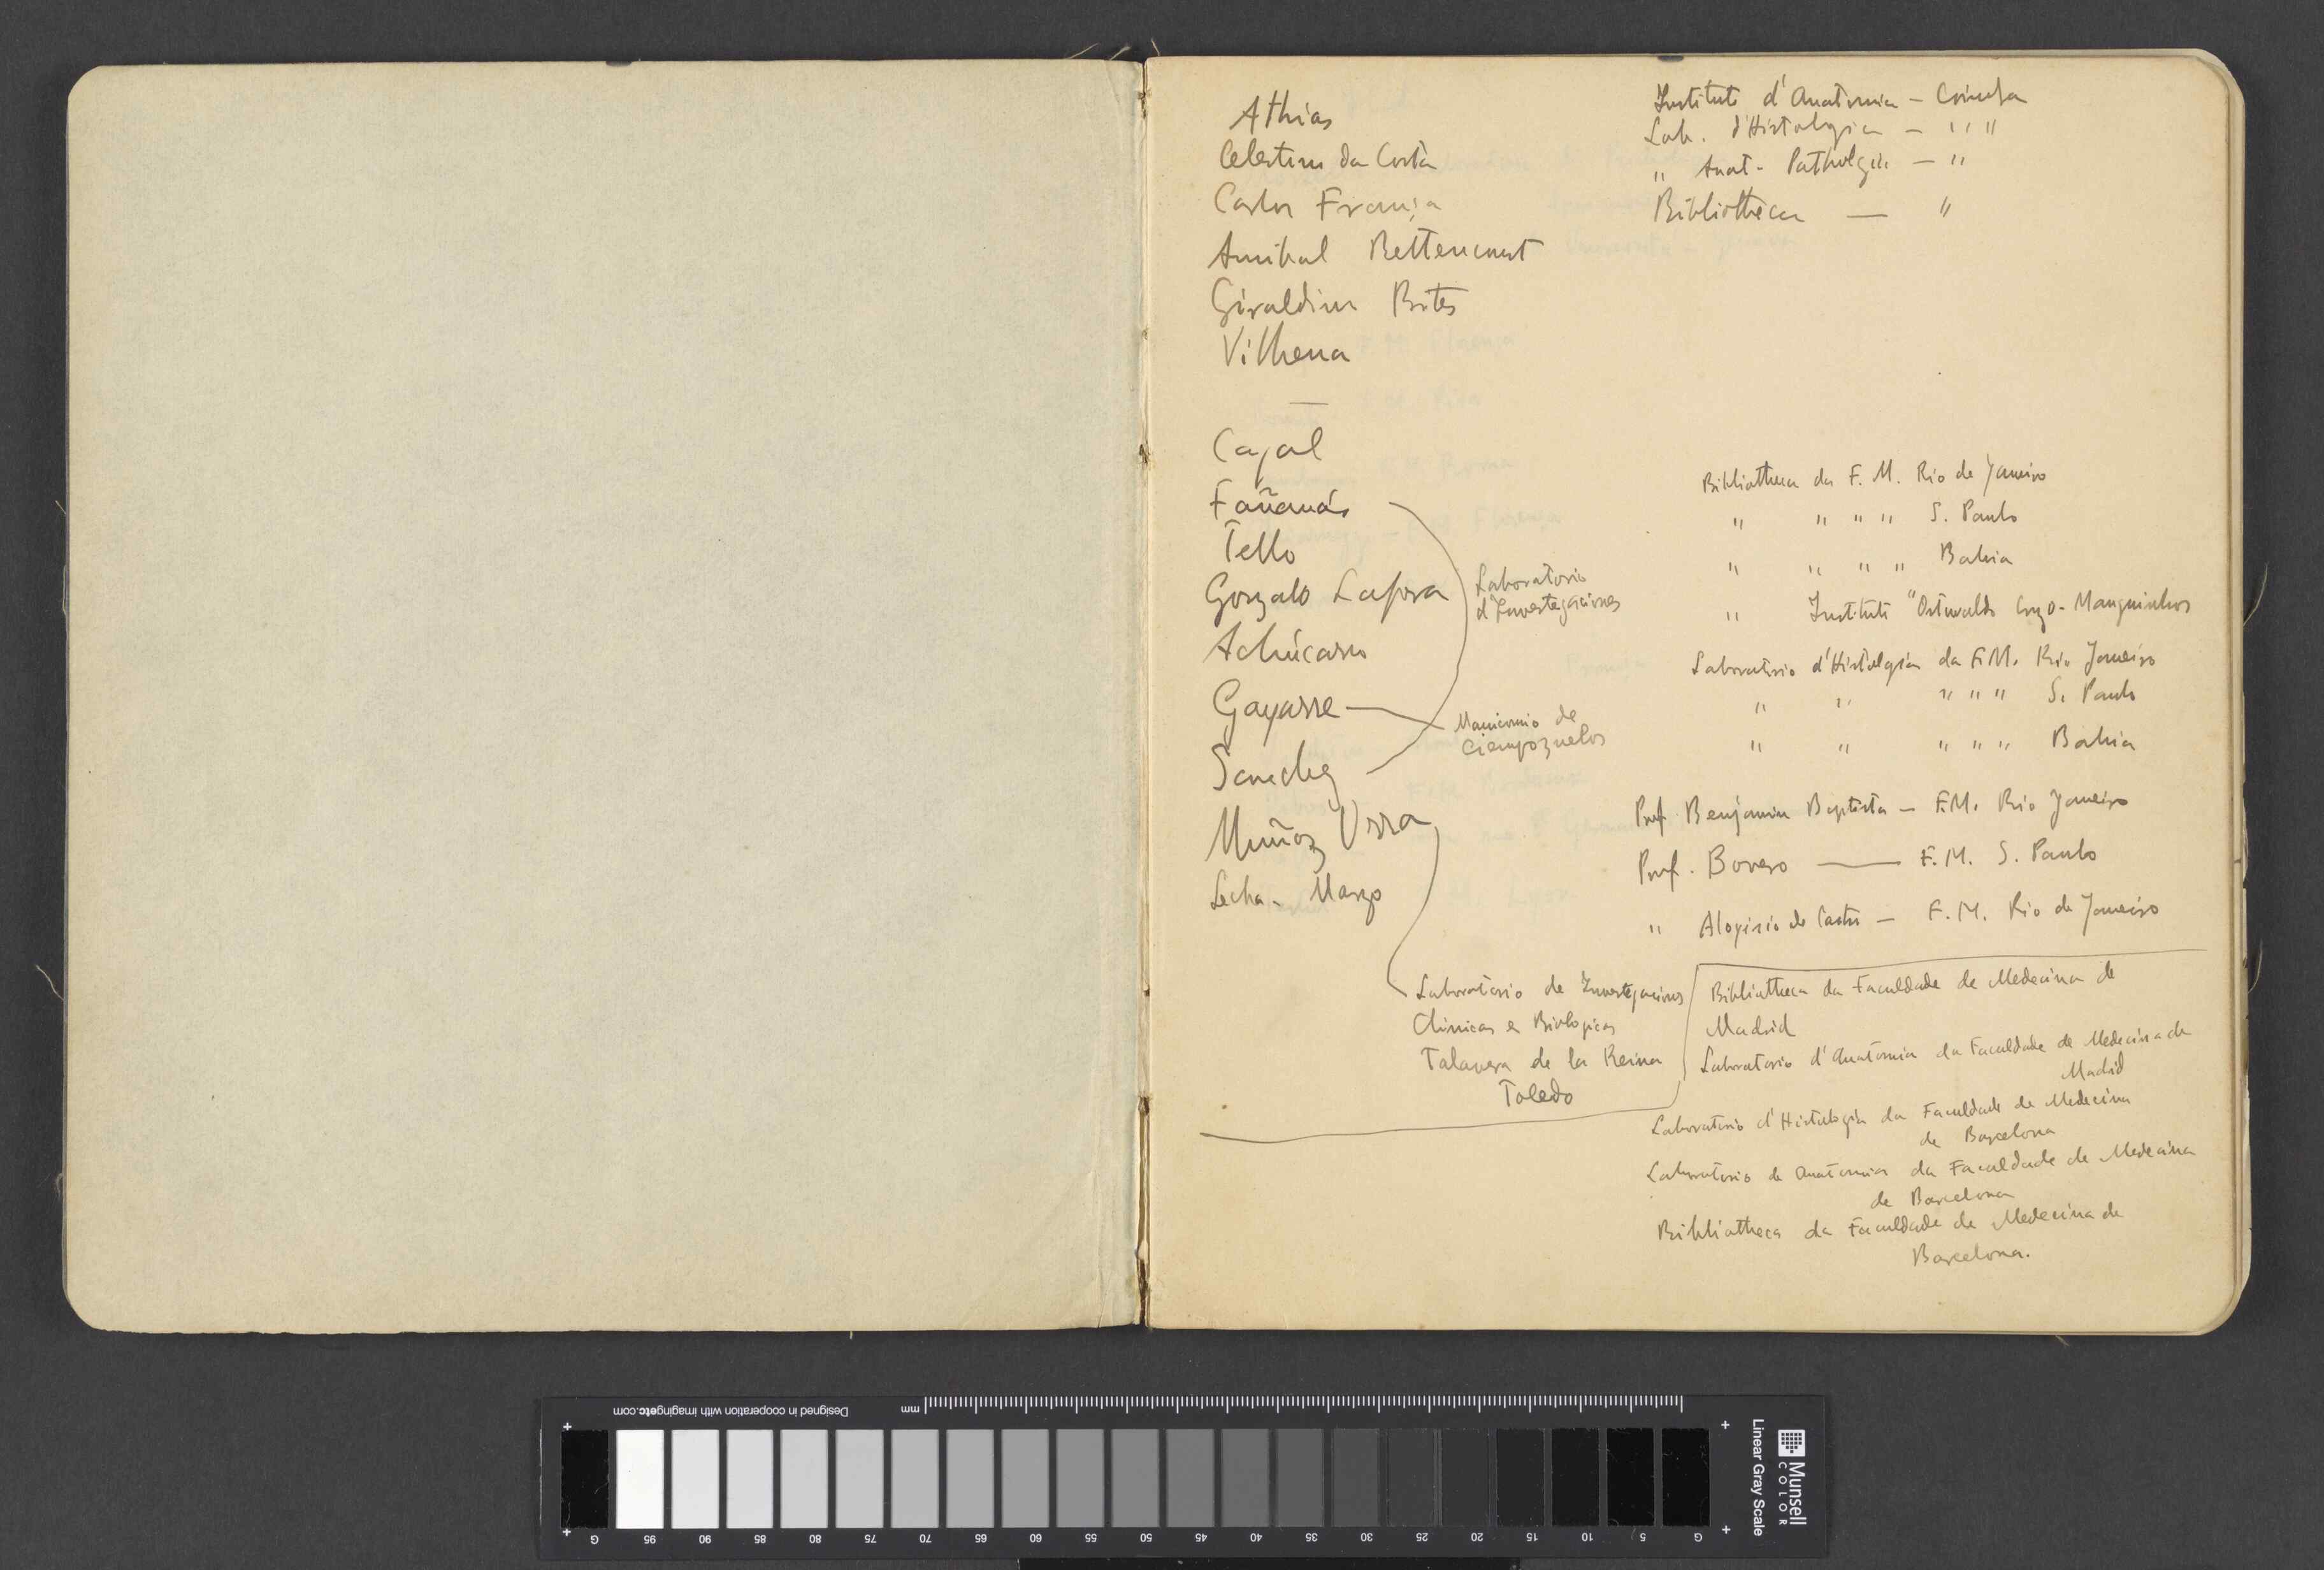 Athias
Celestino da Costa
Carlos França
Annibal Bettencourt
Giraldino Brites
Vilhena
Cajal
Fañanás
Tello
Gonzalo Lafora
Achúcarro
Gayarre
Sanchez
Muñoz Urra
Lecha-Marzo
Laboratorio
d'Investegaciones
Manicomio de
Ciempozuelos
Laboratorio de Investegaciones
Clinicas e Biologicas
Talavera de la Reina
Toledo
Instituto d'Anatomia - Coimbra
Lab. d'Histologia - " "
" Anat- Pathologia - "
Bibliotheca — "
Bibliotheca da F. M. Rio de Janeiro
" " " " S. Paulo
" " " " Bahia
" Instituto "Ostwaldo Cruzo - Manguinhos
Laboratorio d'Histologia da F.M. Rio Janeiro
" " " " " S. Paulo
" " " " " Bahia
Prof. Benjamin Baptista - F.M. Rio Janeiro
Prof. Bovero — F.M. S. Paulo
" Aloysio de Castro - F.M. Rio de Janeiro
Bibliotheca da Faculdade de Medecina de
Madrid
Laboratorio d'Anatomia da Faculdade de Medecina de
Madrid
Laboratorio d'Histologia da Faculdade de Medecina
de Barcelona
Laboratorio de Anatomia da Faculdade de Medecina
de Barcelona
Bibliotheca da Faculdade de Medecina de
Barcelona.
Designed in cooperation with imagingetc.com
mm
Munsell
COLOR
Linear Gray Scale
G 95 90 85 80 75 70 65 60 55 50 45 40 35 30 25 20 15 10 5 G